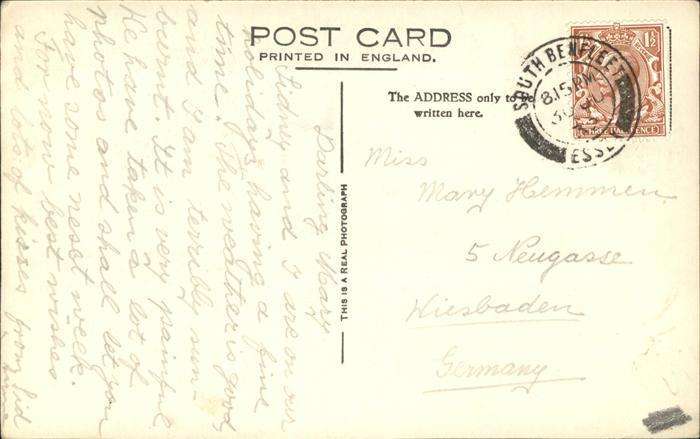 POST CARD
PRINTED IN ENGLAND.
The ADDRESS only to be
written here.
THIS IS A REAL PHOTOGRAPH
SOUTH BENFLEET
8.15 PM
30
ESSEX
1½
THREE HALFPENCE
Miss
Mary Hemmen
5 Neugasse
Wiesbaden
Germany
Darling Mary
and I are on our
holidays, having a fine
time. The weather is good,
and I am terribly sun-
burnt. It is very painful
We have taken a lot of
photos and shall let you
have some next week.
For now best wishes
and lots of kisses from Sid